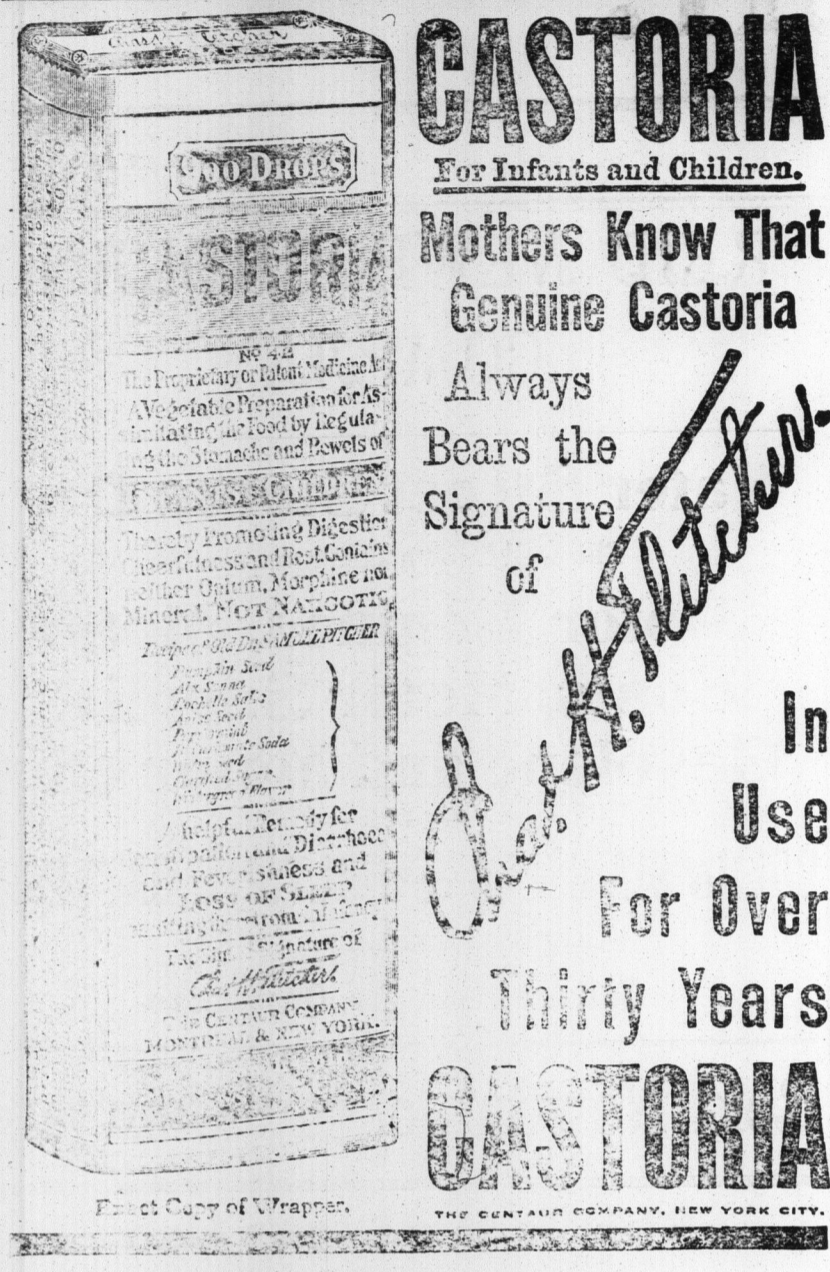 900 DROPS
CASTORIA
The Proprietary or Patent Medicine Act
A Vegetable Preparation for As-
similating the Food by Regula-
ing the Stomachs and Bowels of
INFANTS & CHILDREN
Thereby Promoting Digestion
Cheerfulness and Rest. Contains
neither Opium, Morphine nor
Mineral. NOT NARCOTIC.
Recipe of Old Dr SAMUEL PITCHER
Pumpkin Seed
Alx Senna
Rochelle Salts
Anise Seed
Peppermint
Worm Seed
Clarified Sugar
Wintergreen Flavor
A helpful Remedy for
Constipation and Diarrhoea
and Feverishness and
LOSS OF SLEEP
Signature of
Chas H Fletcher.
THE CENTAUR COMPANY
MONTREAL & NEW YORK.
Exact Copy of Wrapper.
CASTORIA
For Infants and Children.
Mothers Know That
Genuine Castoria
Always
Bears the
Signature
of
Chas. H. Fletcher.
In
Use
For Over
Thirty Years
CASTORIA
THE CENTAUR COMPANY, NEW YORK CITY.